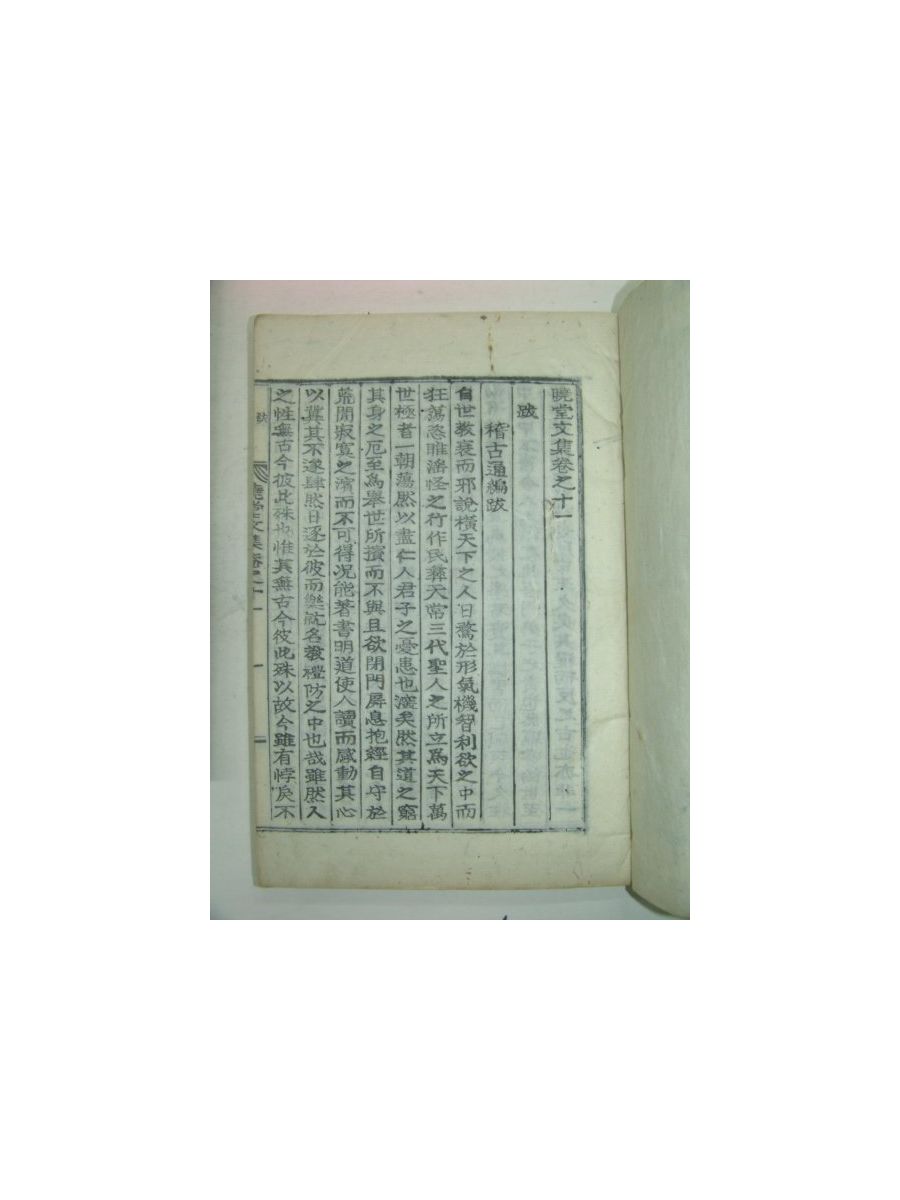 曉堂文集卷之十一
跋
稽古通編跋
自世教衰而邪說橫天下之人日騖於形氣機智利欲之中而
狂蕩恣睢譎怪之行作民彝天常三代聖人之所立爲天下萬
世極者一朝蕩然以盡仁人君子之憂患也深矣然其道之窮
其身之厄至爲舉世所擯而不與且欲閉門屏息抱經自守於
荒閒寂寞之濱而不可得况能著書明道使人讀而感動其心
以冀其不遂肆然日逐於彼而樂就名教禮防之中也哉雖然人
之性無古今彼此殊也惟其無古今彼此殊以故今雖有悖戾不
跋
曉堂文集卷之十一